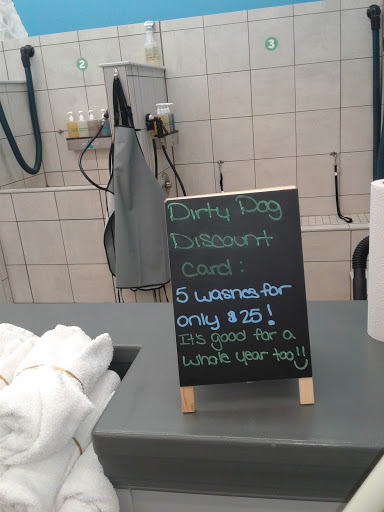 2
3
Dirty Dog
Discount
Card:
5 washes for
only $25!
It's good for a
whole year too!!